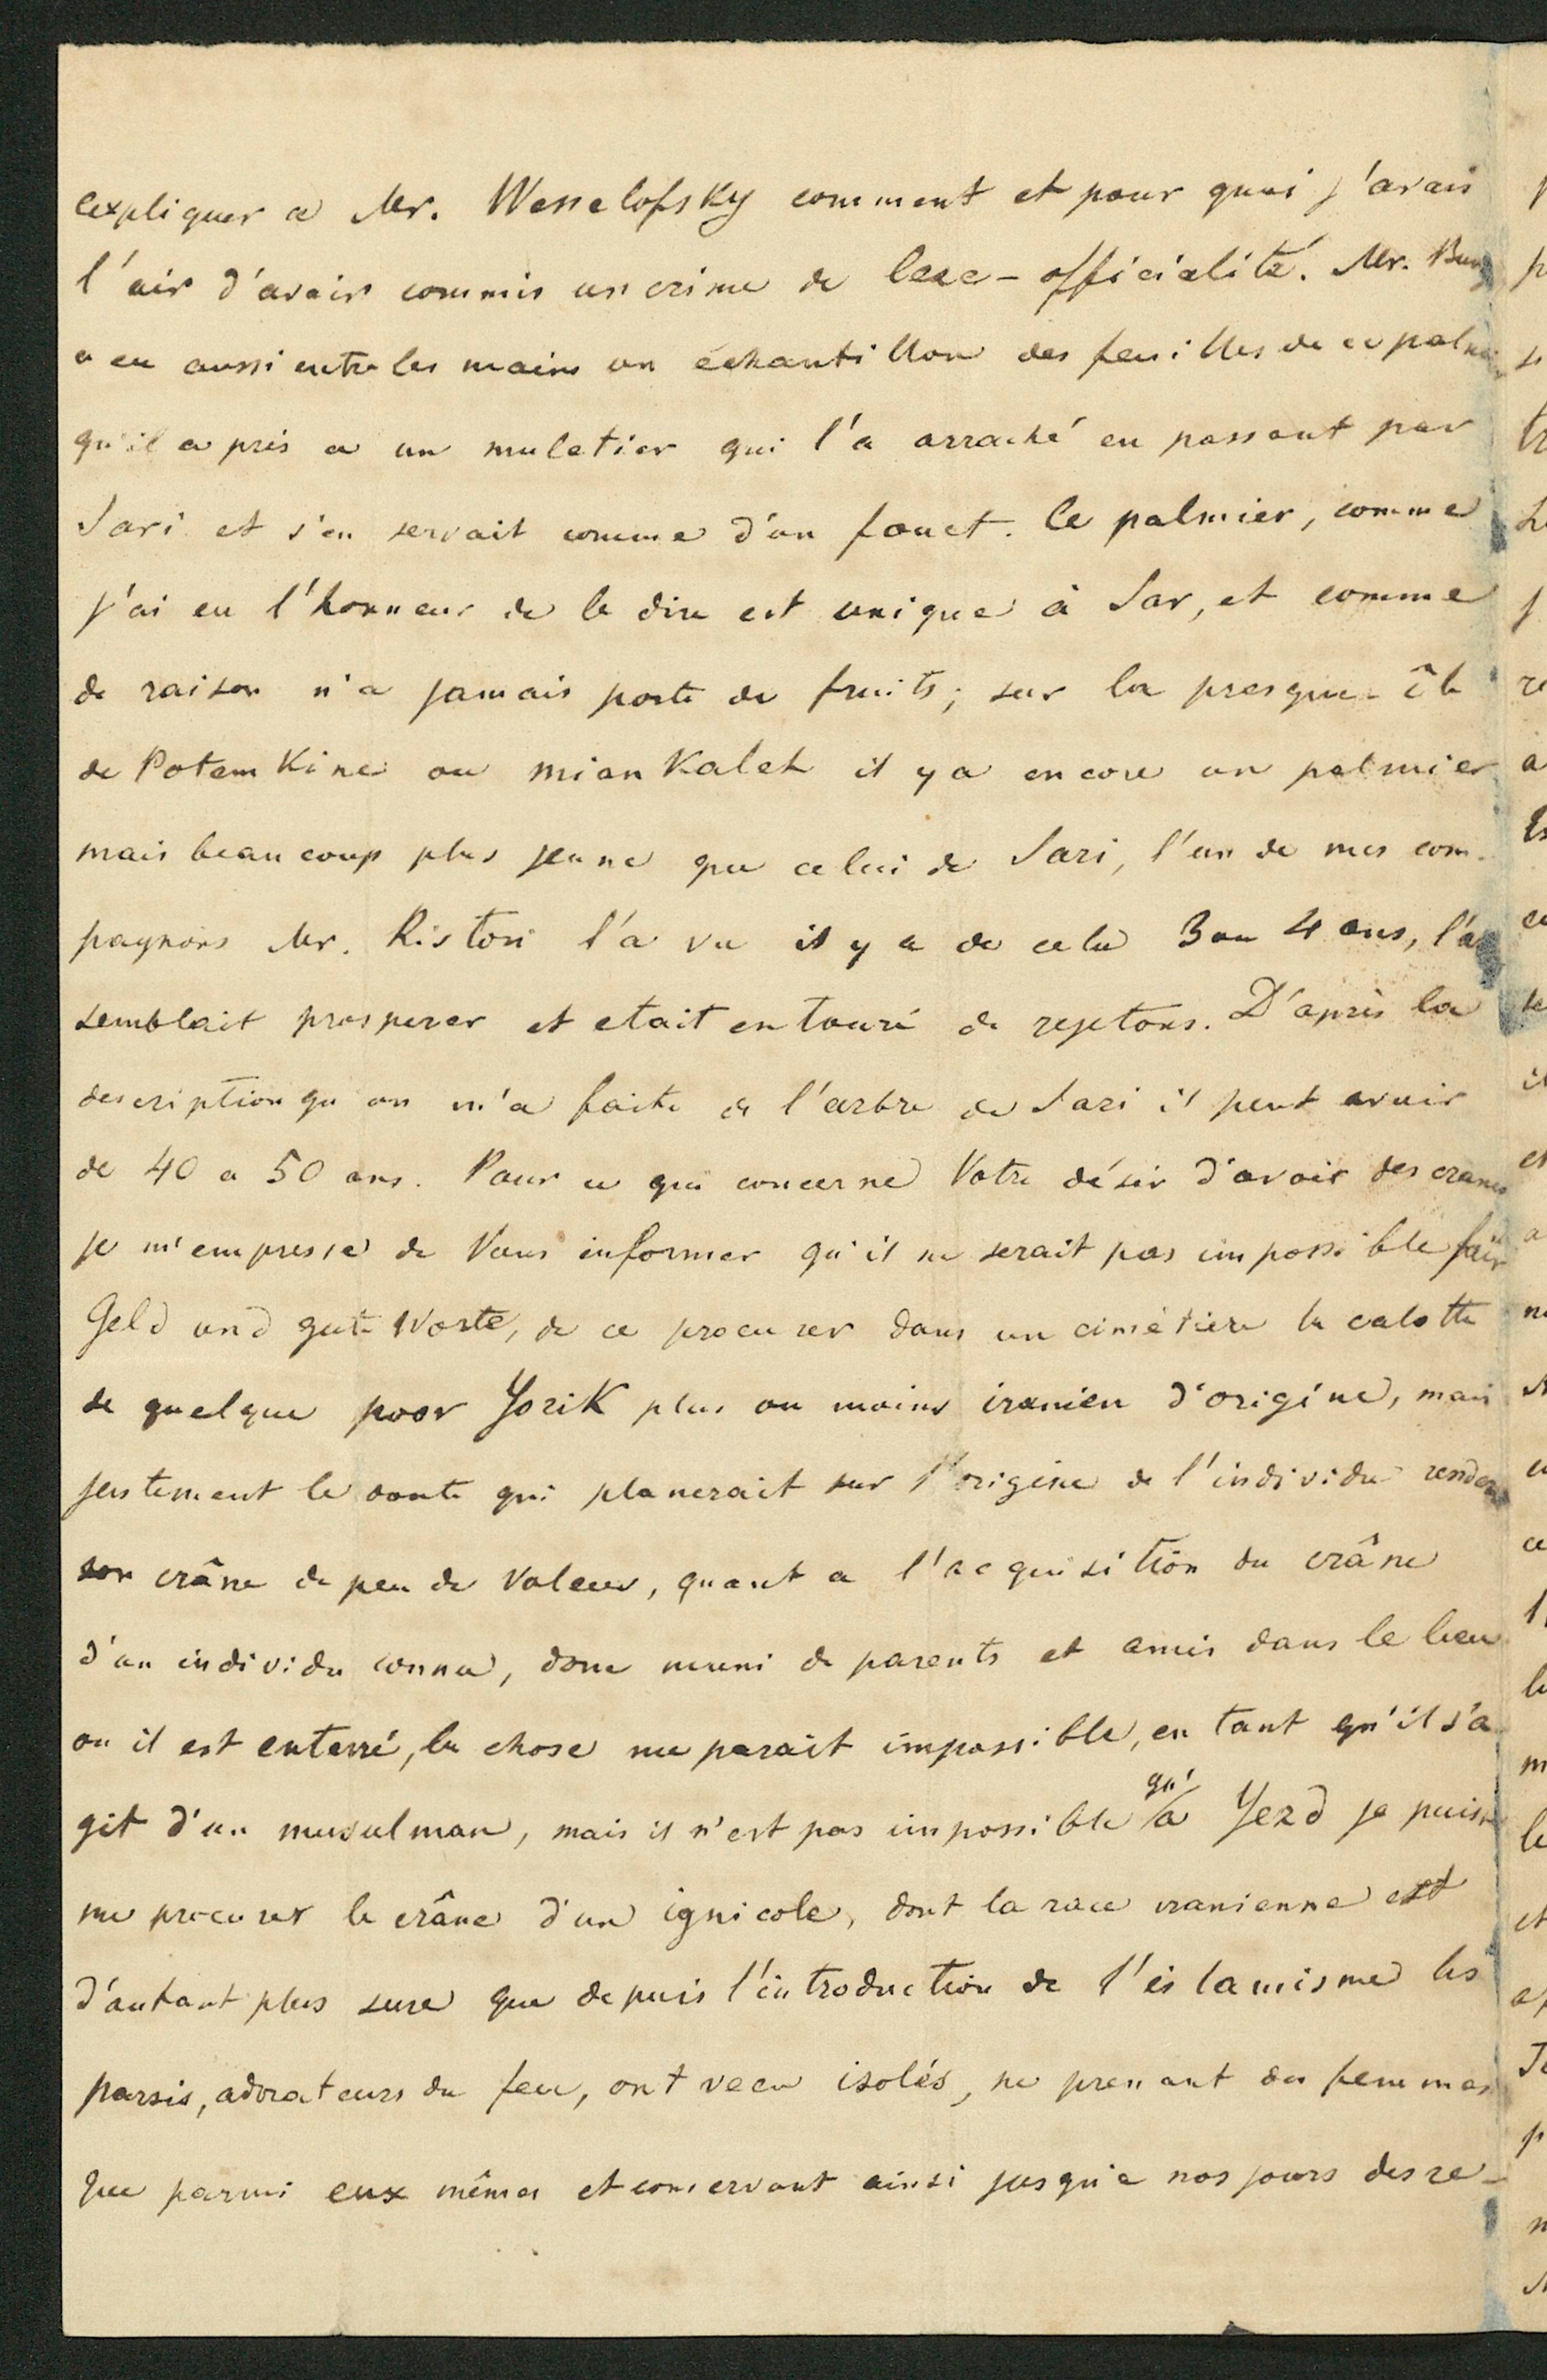 expliquer a Mr. Wesselofsky comment et pour quoi j'avais
l'air d'avoir commis un crime de lese-officialité. Mr. Bung
a eu aussi entre les mains un échantillon des feuilles de ce palmier
qu'il a pris a un muletier qui l'a arraché en passant par
Sari et s'en servait comme d'un fouet. Ce palmier, comme
j'ai eu l'honneur de le dire est unique à Sar, et comme
de raison n'a jamais porté de fruits; sur la presque-île
de Potemkine ou miankaleh il y a encore un palmier
mais beaucoup plus jeune que celui de Sari, l'un de mes com-
pagnons Mr. Ristori l'a vu il y a de cela 3 ou 4 ans, l'a
semblait prosperer et etait entouré de rejetons. D'après la
description qu'on m'a faite de l'arbre de Sari il peut avoir
de 40 a 50 ans. Pour ce qui concerne Votre désir d'avoir des cranes
je m'empresse de Vous informer qu'il ne serait pas impossible für
Geld und gute Worte, de ce procurer dans un cimétière la calotte
de quelque poor Yorik plus ou moins iranien d'origine, mais
justement le doute qui planerait sur l'origine de l'individu rendent
son crâne de peu de valeur, quant a l'acquisition du crâne
d'un individu connu, donc muni de parents et amis dans le lieu
ou il est enterré, la chose me parait impossible, en tant qu'il s'a-
git d'un musulman, mais il n'est pas impossible qu'a Yezd je puisse
me procurer le crâne d'un ignicole, dont la race iranienne est
d'autant plus sure que depuis l'introduction de l'islamisme les
parsis, adorateurs du feu, ont vecu isolés, ne prenant des femmes
que parmi eux mêmes et conservant ainsi jusqu'a nos jours des re-